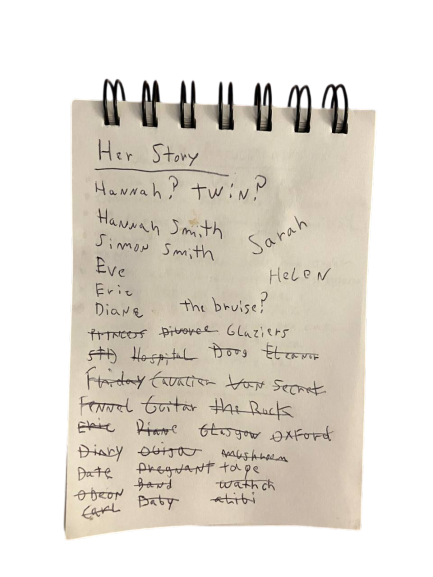 Her Story
Hannah? TWIN?
Hannah Smith
Sarah
Simon Smith
Eve
HELEN
Eric
Diane the bruise?
Princess Divorce Glaziers
STD Hospital Doug Eleanor
Friday Cavalier Van Secret
Fennel Guitar the Rock
Eric Diane Glasgow OXford
Diary Ouija mushroom
Date Pregnant tape
Oberon Band watch
Carl Baby alibi